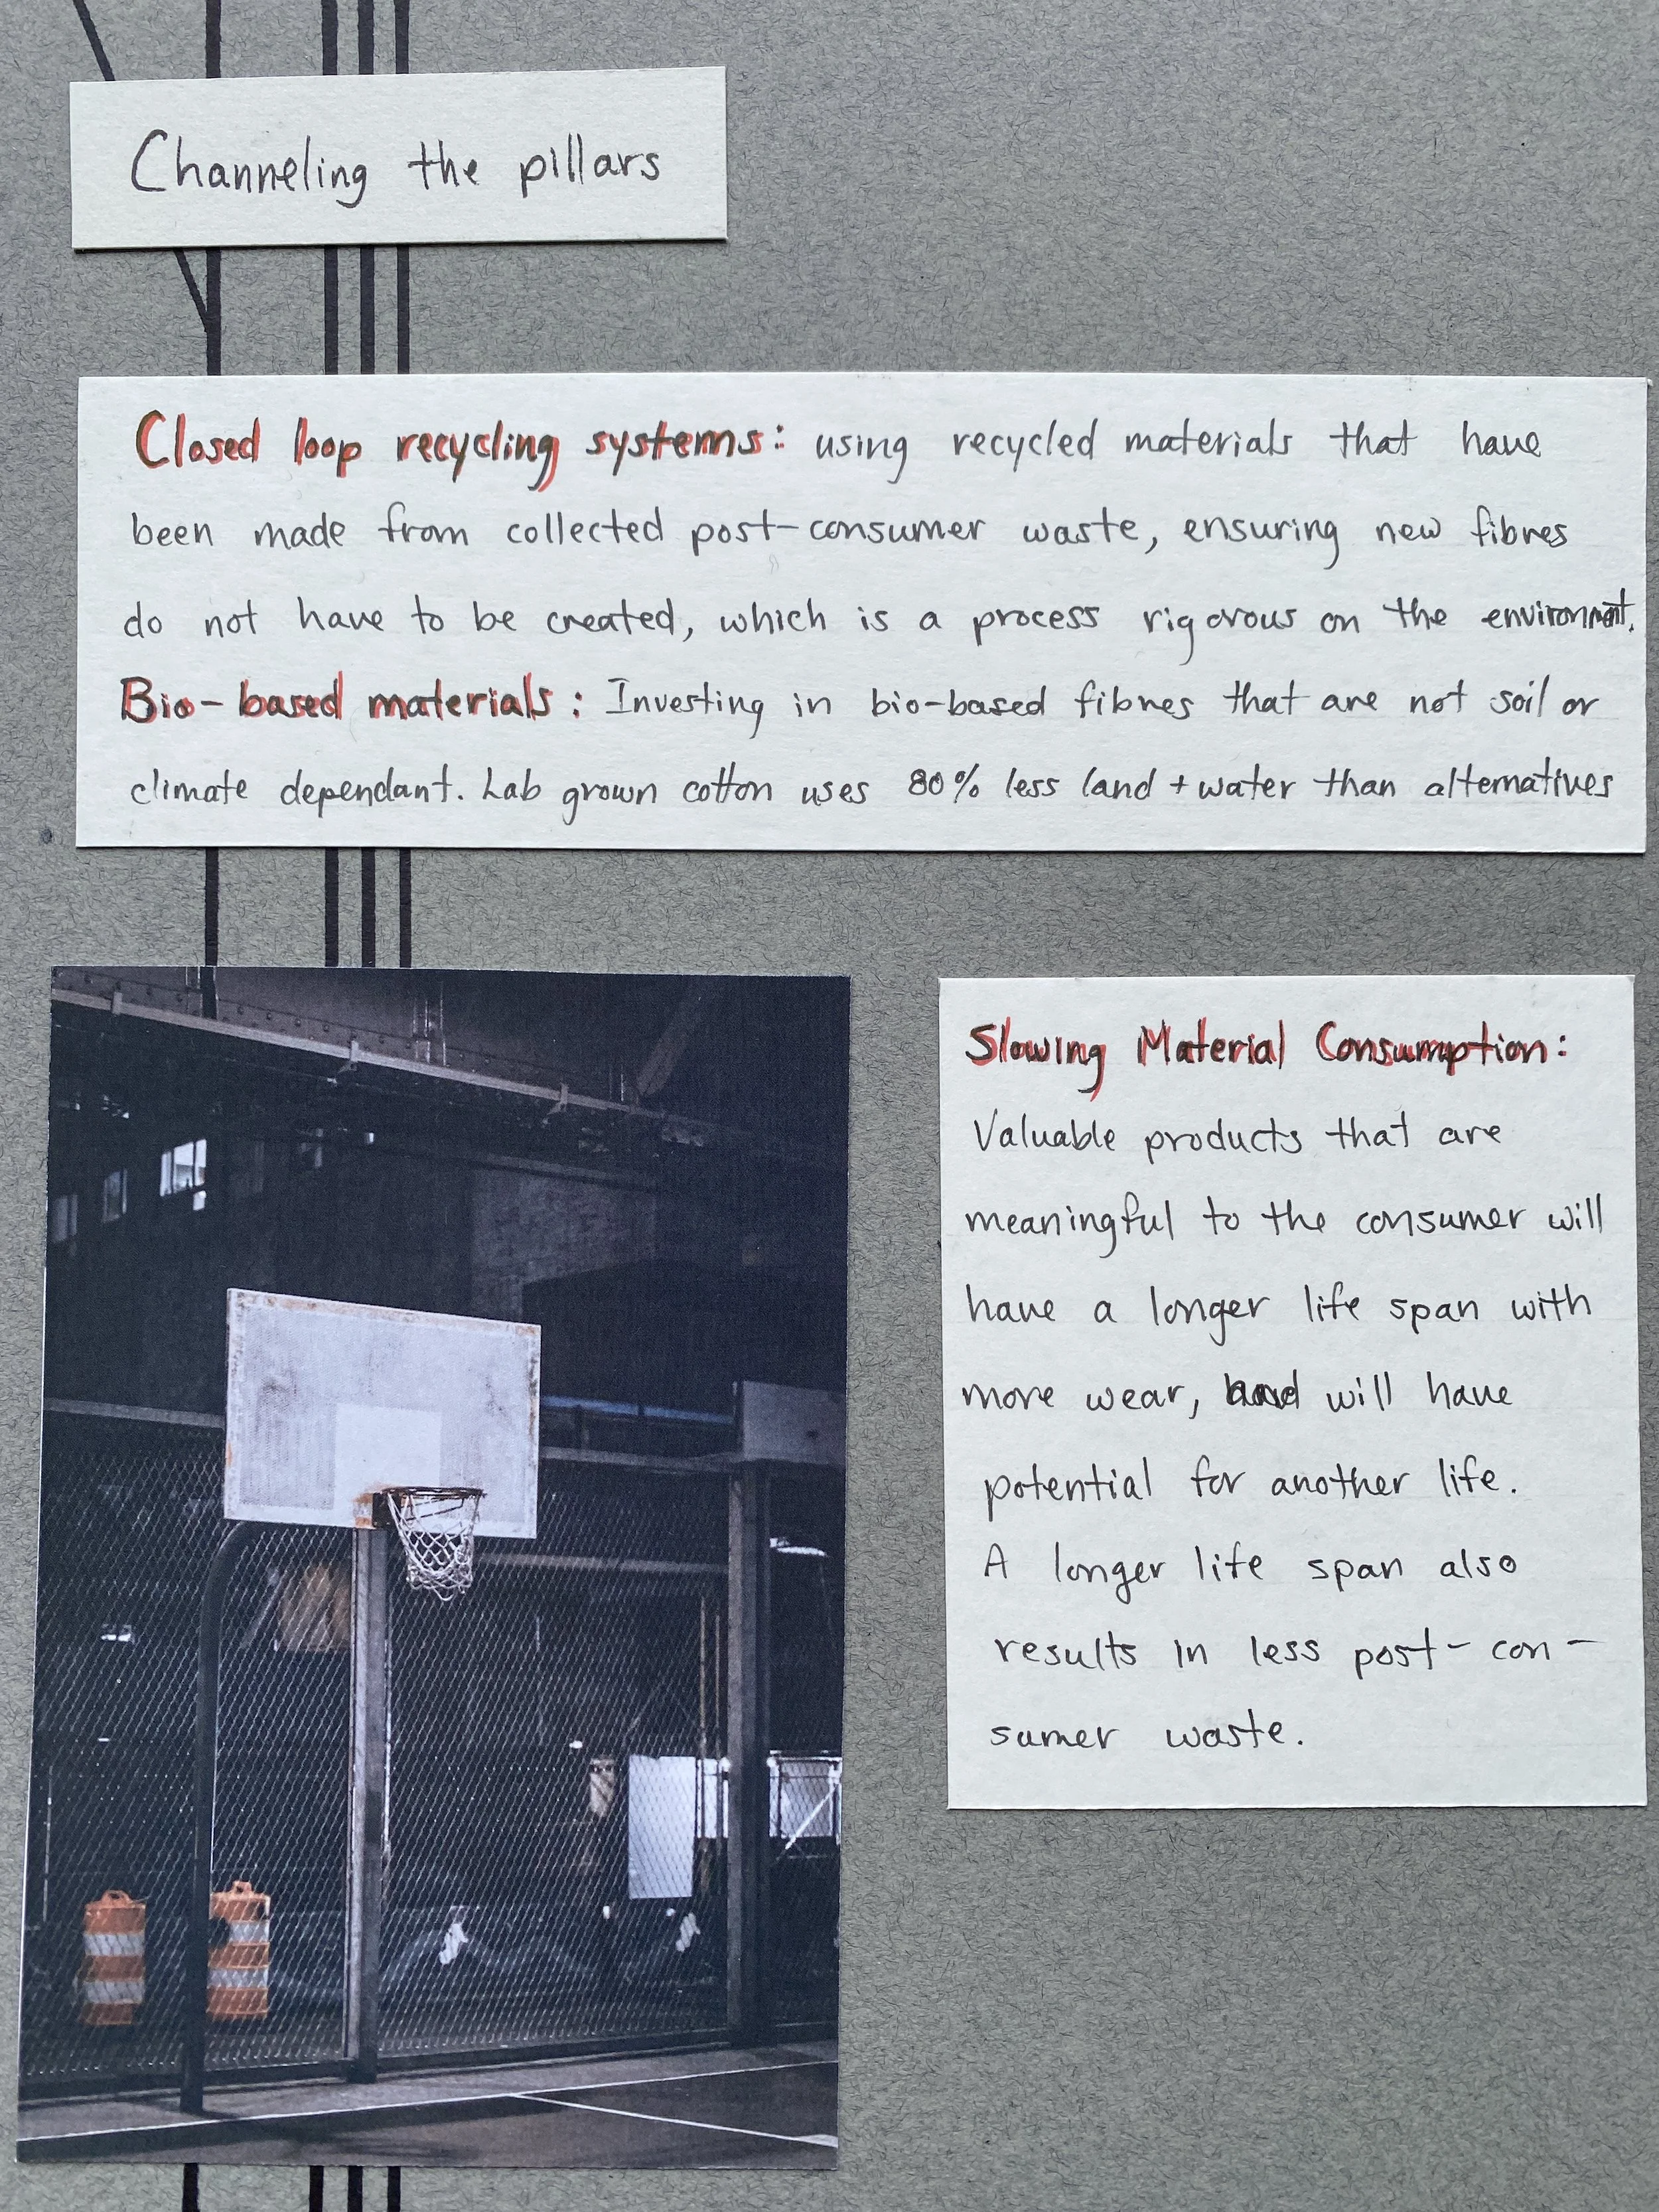 Channeling the pillars
Closed loop recycling systems: using recycled materials that have
been made from collected post-consumer waste, ensuring new fibres
do not have to be created, which is a process rigorous on the environment.
Bio-based materials: Investing in bio-based fibres that are not soil or
climate dependant. Lab grown cotton uses 80% less land + water than alternatives
Slowing Material Consumption:
Valuable products that are
meaningful to the consumer will
have a longer life span with
more wear, and will have
potential for another life.
A longer life span also
results in less post-con-
sumer waste.